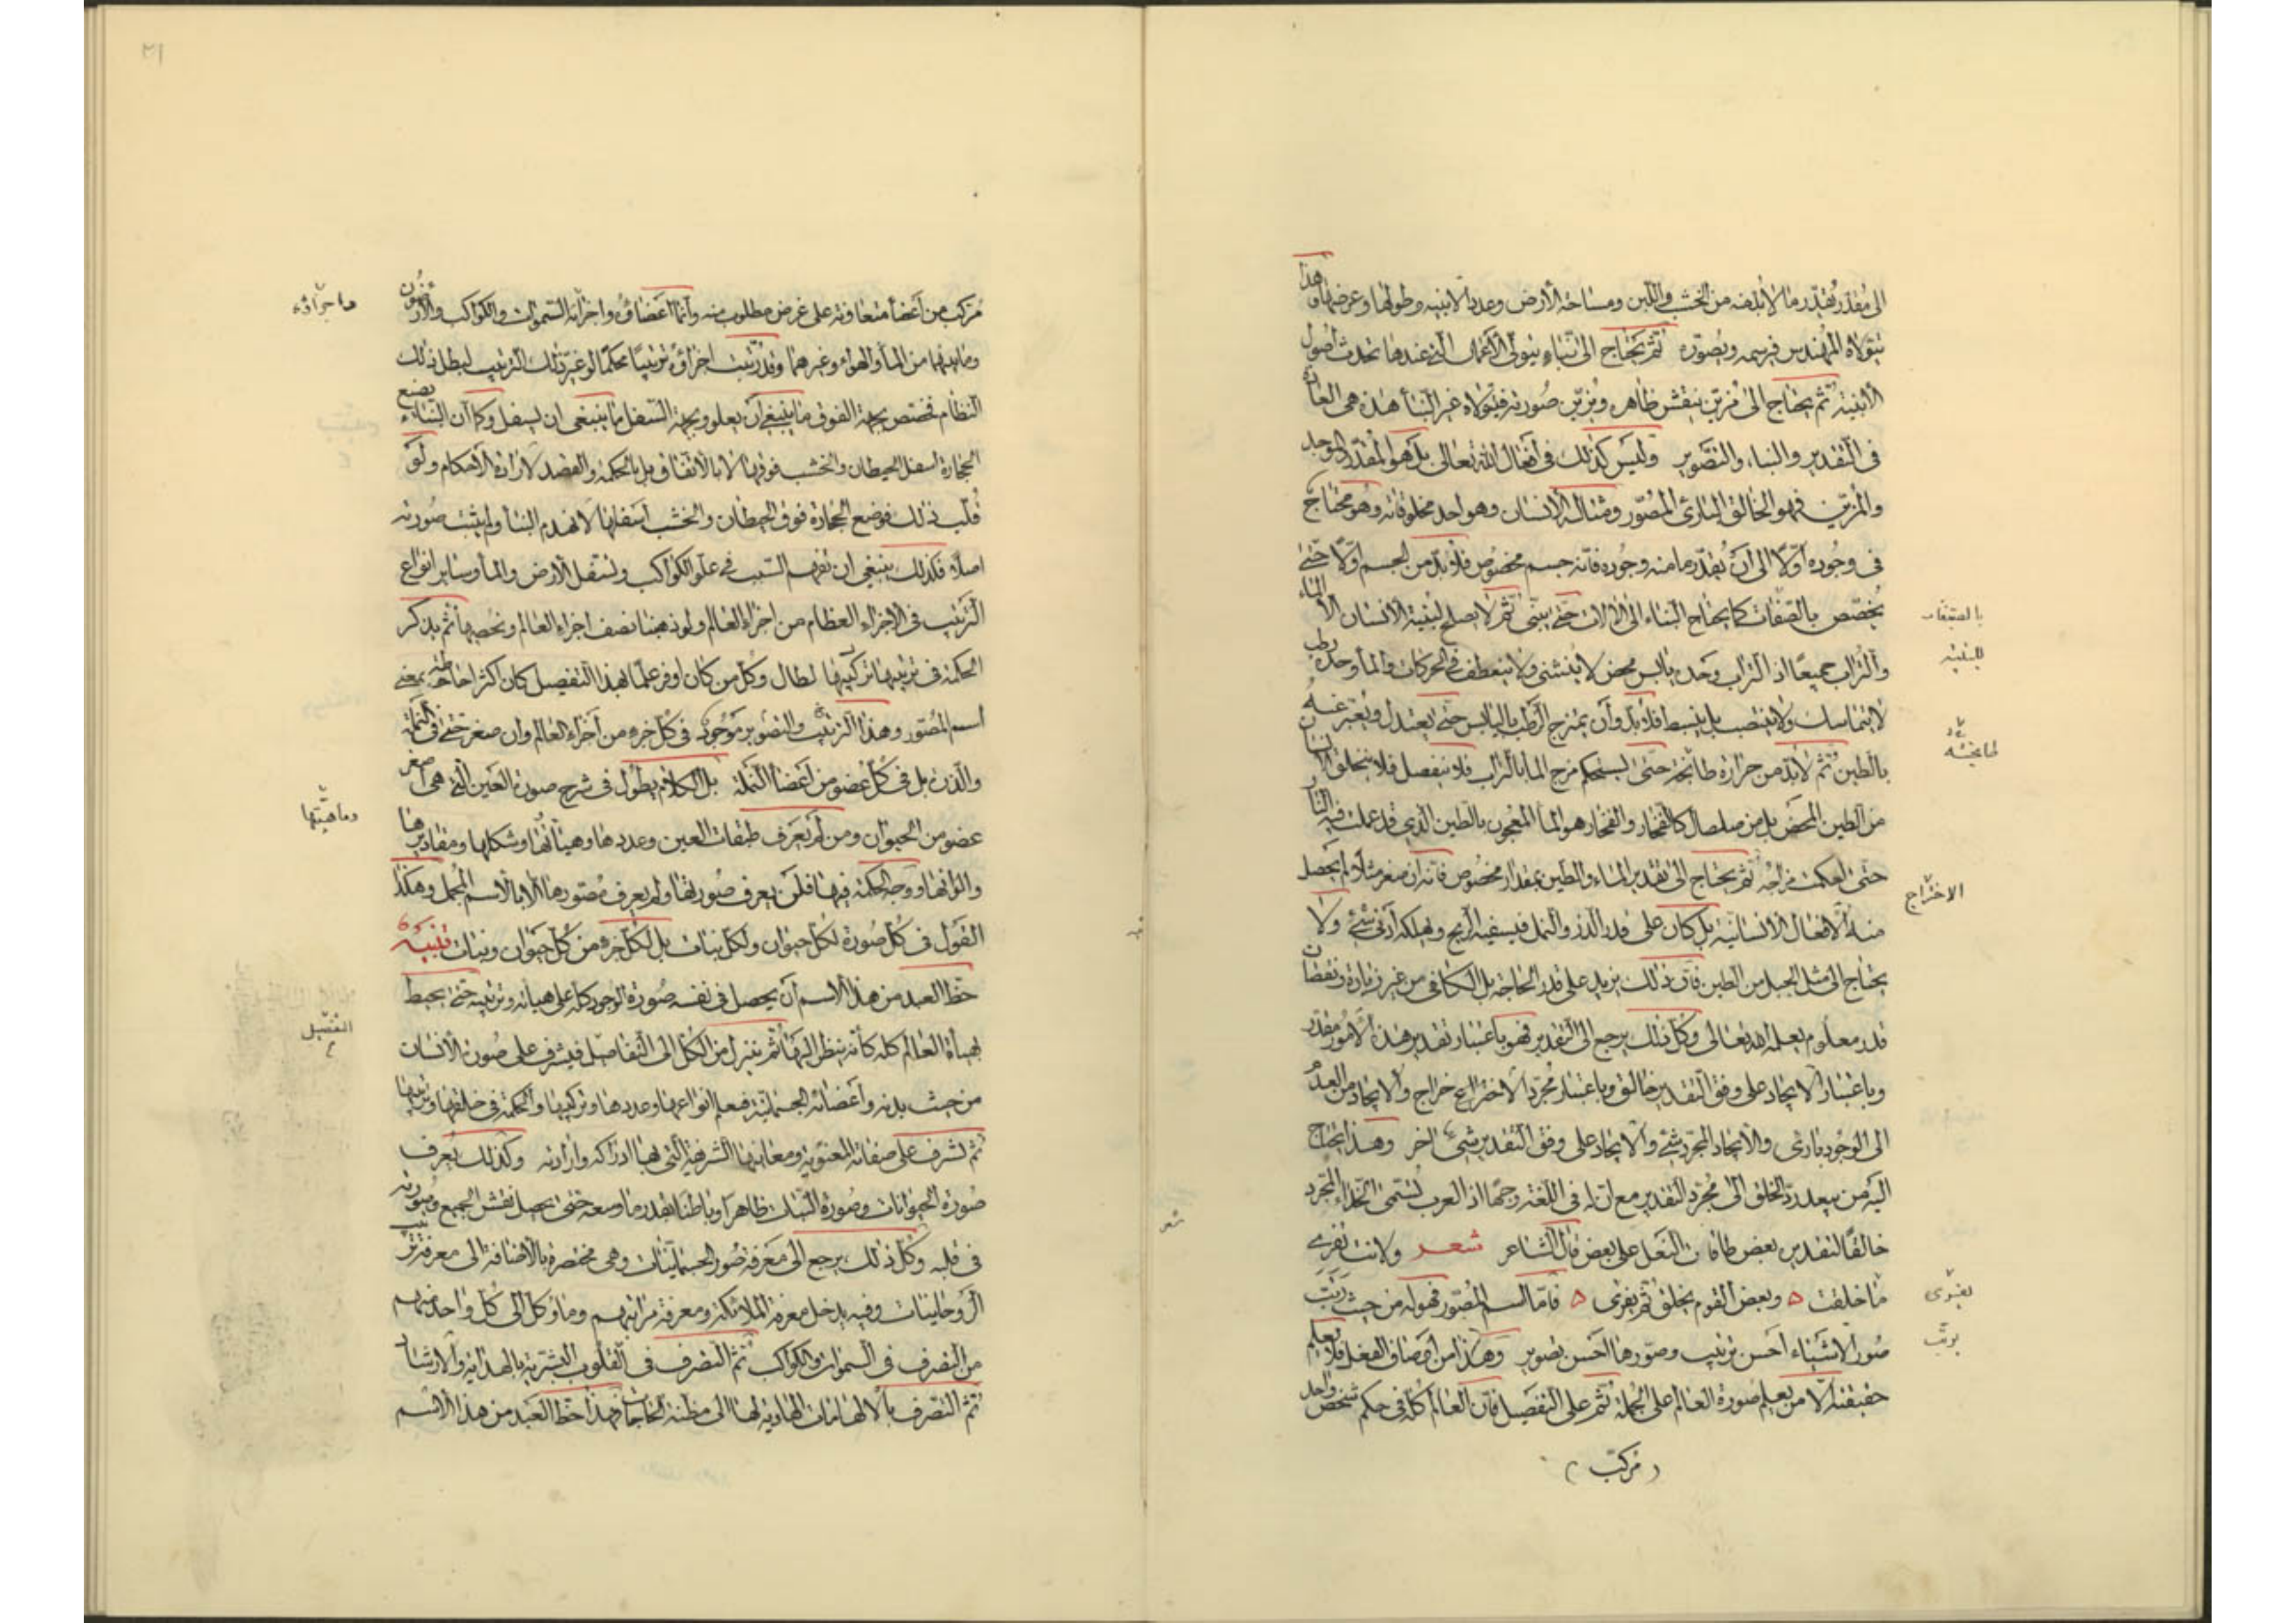 الى مقدر يقدر ما لا بد منه من الخشب واللبن ومساحة الأرض وعدد الابنية وطولها وعرضها وهذا
يتولاه المهندس فيرسمه ويصوره ثم يحتاج الى بناء يتولى الأعمال التي عندها تحدث اصول
الأبنية ثم يحتاج الى مزين ينقش ظاهره ويزين صورته فيتولاه غير البناء هذه هى العادة
فى التقدير والبناء والتصوير وليس كذلك فى افعال الله تعالى بل هو المقدر الموجد
والمزين فهو الخالق البارئ المصور ومثاله الانسان وهو احد مخلوقاته وهو محتاج
فى وجوده اولا الى أن يقدر ما منه وجوده فانه جسم مخصوص فلا بد من الجسم اولا حتى
يخصص بالصفات كما يحتاج البناء الى الالات حتى يبنى ثم لا يصلح لبنية الانسان الا الماء
والتراب جميعا اذ التراب وحده يابس محض لا ينثنى ولا ينعطف فى الحركات والماء وحده رطب
لا يتماسك ولا ينتصب بل ينبسط فلا بد وأن يمتزج الرطب باليابس حتى يعتدل ويعبر عنه
بالطين ثم لا بد من حرارة طابخة حتى يستحكم مزج الماء بالتراب فلا ينفصل فلا يتخلق الانسان
من الطين المحض بل من صلصال كالفخار والفخار هو الماء المعجون بالطين الذى قد عملت فيه النار
حتى احكمت مزاجه ثم يحتاج الى تقدير الماء والطين بمقدار مخصوص فانه ان صغر مثلا لم يحصل
منه الافعال الانسانية بل كان على قدر الذر والنمل فيسفيه الريح ويهلكه أدنى شئ ولا
يحتاج الى مثل الجبل من الطين فان ذلك يزيد على قدر الحاجة بل الكافى من غير زيادة ونقصان
قدر معلوم يعلمه الله تعالى وكل ذلك يرجع الى التقدير فهو باعتبار تقدير هذه الامور مقدر
وباعتبار الايجاد على وفق التقدير خالق وباعتبار مجرد الاختراع خراج والايجاد من العدم
الى الوجود بارئ والايجاد المجرد شئ والايجاد على وفق التقدير شئ اخر وهذا يحتاج
اليه من يبعد رد الخلق الى مجرد التقدير مع ان له فى اللغة وجها اذ العرب تسمى الحذاء المجرد
خالقا لتقديره بعض طاقات النعل على بعض قال الشاعر شعر ولانت تفرى
ما خلقت ه وبعض القوم يخلق ثم يفرى ه فاما اسم المصور فهو له من حيث رتب
صور الاشياء احسن ترتيب وصورها احسن تصوير وهذا من اوصاف الفعل فلا يعلم
حقيقته الا من يعلم صورة العالم على الجملة ثم على التفصيل فان العالم كله فى حكم شخص واحد
(مركب)
بالصفات
للبنية
طابخة
الاختراج
يفرى
يرتب
٣١
مركب من أعضاء متعاونة على غرض مطلوب منه وانما اعضاؤه واجزائه السموات والكواكب والارضون
وما بينهما من الماء والهواء وغيرهما وقد رتبت اجزاؤه ترتيبا محكما لو غير ذلك الترتيب لبطل ذلك
النظام فخصص بجهة الفوق ما ينبغى أن يعلو وبجهة السفل ما ينبغى ان يسفل وكما أن البناء يضع
الحجارة اسفل الحيطان والخشب فوقها لا بالاتفاق بل بالحكمة والقصد لارادة الاحكام ولو
قلب ذلك فوضع الحجارة فوق الحيطان والخشب اسفلها لانهدم البناء ولم يثبت صورته
اصلا فكذلك ينبغى ان تفهم السبب فى علو الكواكب وتسفل الارض والماء وسائر انواع
الترتيب فى الاجزاء العظام من اجزاء العالم ولو ذهبنا نصف اجزاء العالم ونحصيها ثم نذكر
الحكمة فى ترتيبها تركيبها لطال وكل من كان اوفر علما بهذا التفصيل كان اكثر احاطة بمعنى
اسم المصور وهذا الترتيب والتصوير موجود فى كل جزء من أجزاء العالم وان صغر حتى فى النملة
والذرة بل فى كل عضو من أعضاء النملة بل الكلام يطول فى شرح صورة العين التى هى اصغر
عضو من الحيوان ومن لم يعرف طبقات العين وعددها وهيآتها وشكلها ومقاديرها
والوانها ووجه الحكمة فيها فلن يعرف صورتها ولم يعرف مصورها الا بالاسم المجمل وهكذا
القول فى كل صورة لكل حيوان ولكل نبات بل لكل جزء من كل حيوان ونبات تنبيه
حظ العبد من هذا الاسم أن يحصل فى نفسه صورة الوجود كله على هيأته وترتيبه حتى يحيط
بهيأة العالم كله كانه ينظر اليها ثم ينزل من الكل الى التفاصيل فيشرف على صورة الانسان
من حيث بدنه وأعضائه الجسمانية فيعلم انواعها وعددها وتركيبها والحكمة فى خلقها وترتيبها
ثم يشرف على صفاته المعنوية ومعانيها الشريفة التى بها ادراكه وارادته وكذلك يعرف
صورة الحيوانات وصورة النبات ظاهرا وباطنا بقدر ما وسعه حتى يحصل نقش الجميع وصورته
فى قلبه وكل ذلك يرجع الى معرفة صور الجسمانيات وهى مختصرة بالاضافة الى معرفة ترتيب
الروحانيات وفيه يدخل معرفة الملائكة ومعرفة مراتبهم وما وكل الى كل واحد منهم
من التصرف فى السموات والكواكب ثم التصرف فى القلوب البشرية بالهداية والارشاد
ثم التصرف بالالهامات الهادية لها الى مظنة الحاجات فهذا حظ العبد من هذا الاسم
وماهيتها